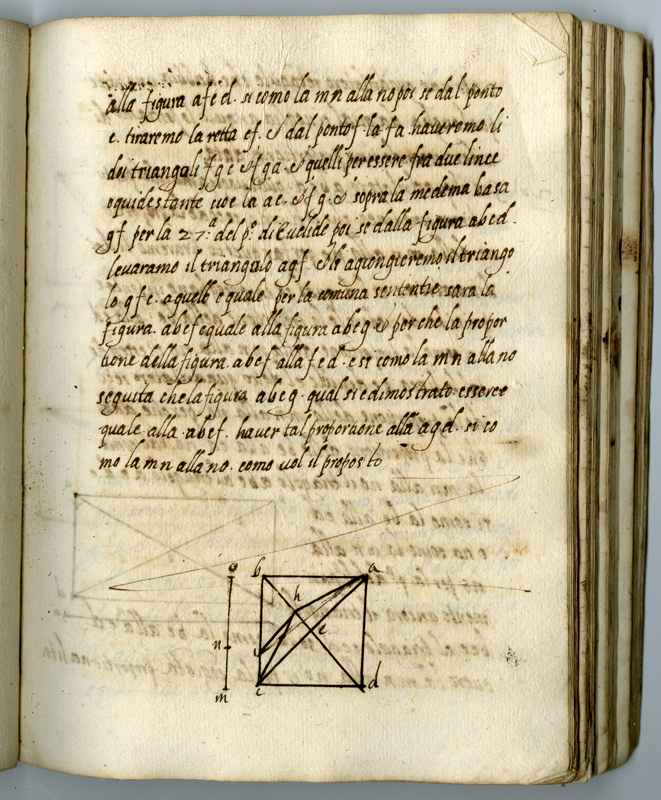 alla figura a f e d. si como la m n alla n o poi se dal ponto
e. tiraremo la retta e f. & dal ponto f. la f a. haveremo li
doi triangoli f g e & f g a. & quelli per essere fra due linee
equidestante cioe la a e. & f g. & sopra la medema basa
g f per la 27.ª del p.º di Euclide poi se dalla figura a b e d.
levaramo il triangolo a g f. & li agiongieremo il triango
lo g f e. a quello equale per la comuna sententie sara la
figura. a b e f equale alla figura a b e g & perche la propor
tione della figura. a b e f alla f e d. e si como la m n alla no
seguita che la figura a b e g. qual si e dimostrato essere e
quale alla. a b e f. haver tal proportione alla a g d. si co
mo la m n alla n o. como vol il proposto
o b a
h
n e
m c d